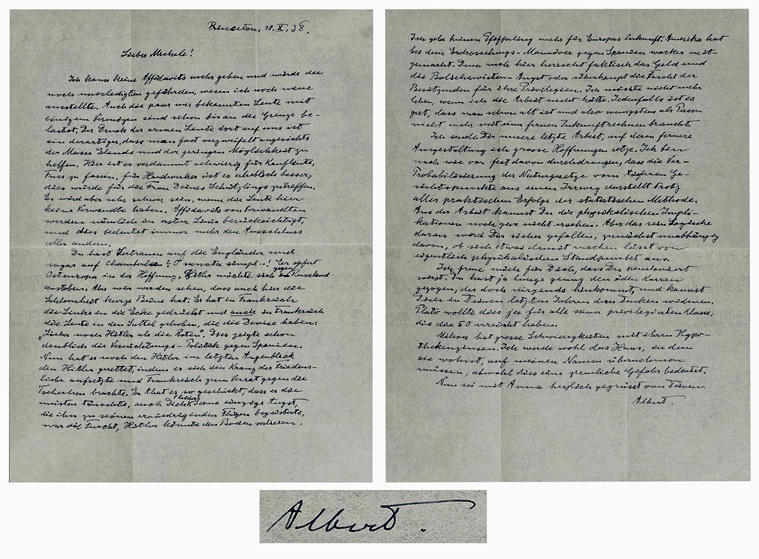 Princeton, 10.X.38.
Lieber Michele!
Ich kann keine Affidavits mehr geben und würde die
noch unerledigten gefährden, wenn ich noch neue
ausstellte. Auch die paar uns bekannten Leute mit
einigem Vermögen sind schon bis an die Grenze be-
lastet. Der Druck der armen Leute dort auf uns ist
ein derartiger, dass man fast verzweifelt angesichts
der Masse Elends und der geringen Möglichkeit zu
helfen. Hier ist es verdammt schwierig für Kaufleute,
Fuss zu fassen, für Handwerker ist es erheblich besser,
dies würde für die Frau Deines Schützlings zutreffen.
Es wird aber sehr schwer sein, wenn die Leute hier
keine Verwandte haben. Affidavits von Verwandten
werden nämlich in erster Linie berücksichtigt,
und dies bedeutet immer mehr den Ausschluss
aller andern.
Du hast Vertrauen auf die Engländer und
sogar auf Chamberlain? O sancta simpl..! Er opfert
Osteuropa in der Hoffnung, Hitler möchte sich gegen Russland
austoben. Aber wir werden sehen, dass auch hier die
Schlauheit kurze Beine hat. Er hat in Frankreich
die Linke in die Ecke gedrückt und auch in Frankreich
die Leute in den Sattel gehoben, die die Devise haben:
"Lieber noch Hitler als die Roten". Dies zeigte schon
deutlich die Vernichtungs-Politik gegen Spanien.
Nun hat er noch den Hitler im letzten Augenblick
gerettet, indem er sich den Kranz der Friedens-
liebe aufsetzte und Frankreich zum Verrat gegen die
Tschechen brachte. Er that es so geschickt, dass er die
meisten täuschte, auch Dich (leider). Seine einzige Angst,
die ihn zu seinen erniedrigenden Flügen begeisterte,
war die Furcht, Hitler könnte den Boden verlieren.
Ich gebe keinen Pfefferling mehr für Europas Zukunft. Amerika hat
bei dem Erdrosselungs-Manöver gegen Spanien wacker mit-
gemacht. Denn auch hier herrscht faktisch das Geld und
die Bolschewisten-Angst oder überhaupt die Furcht der
Besitzenden für ihre Privilegien. Ich möchte nicht mehr
leben, wenn ich die Arbeit nicht hätte. Jedenfalls ist es
gut, dass man schon alt ist und also wenigstens als Person
nicht mehr mit einer fernen Zukunft rechnen braucht.
Ich sende Dir unsere letzte Arbeit, auf deren fernere
Ausgestaltung ich grosse Hoffnungen setze. Ich bin
nach wie vor fest davon durchdrungen, dass die Ver-
Probabilisierung der Naturgesetze vom tieferen Ge-
sichtspunkte aus einen Irrweg darstellt trotz
aller praktischen Erfolge der statistischen Methode.
Aus der Arbeit kannst Du die physikalischen Impli-
kationen wohl gar nicht ersehen. Aber das rein Logische
daran wird Dir sicher gefallen, zunächst unabhängig
davon, ob sich etwas damit machen lässt vom
eigentlich physikalischen Standpunkt aus.
Ich freue mich für Dich, dass Du pensioniert
wirst. Du hast ja lange genug den öden Karren
gezogen, der doch nirgends hinkommt, und kannst
Dich in Deinen letzten Jahren dem Denken widmen.
Plato wollte dies ja für alle seine privilegierten Klasse,
die die 50 erreicht haben.
Mileva hat grosse Schwierigkeiten mit ihren Hypo-
thekenzinsen. Ich werde wohl das Haus, in dem
sie wohnt, auf meinen Namen übernehmen
müssen, obwohl dies eine ziemliche Gefahr bedeutet.
Nun sei mit Anna herzlich gegrüsst von Deinem
Albert.
Albert.